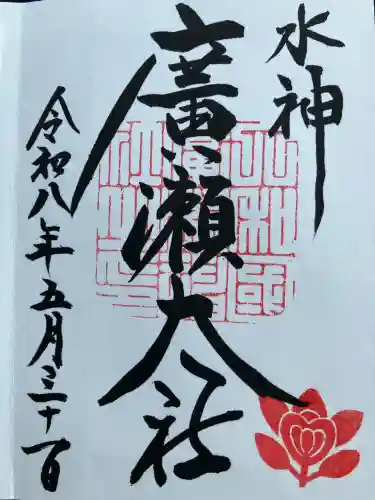 水神
廣瀬大社
令和八年五月三十一日